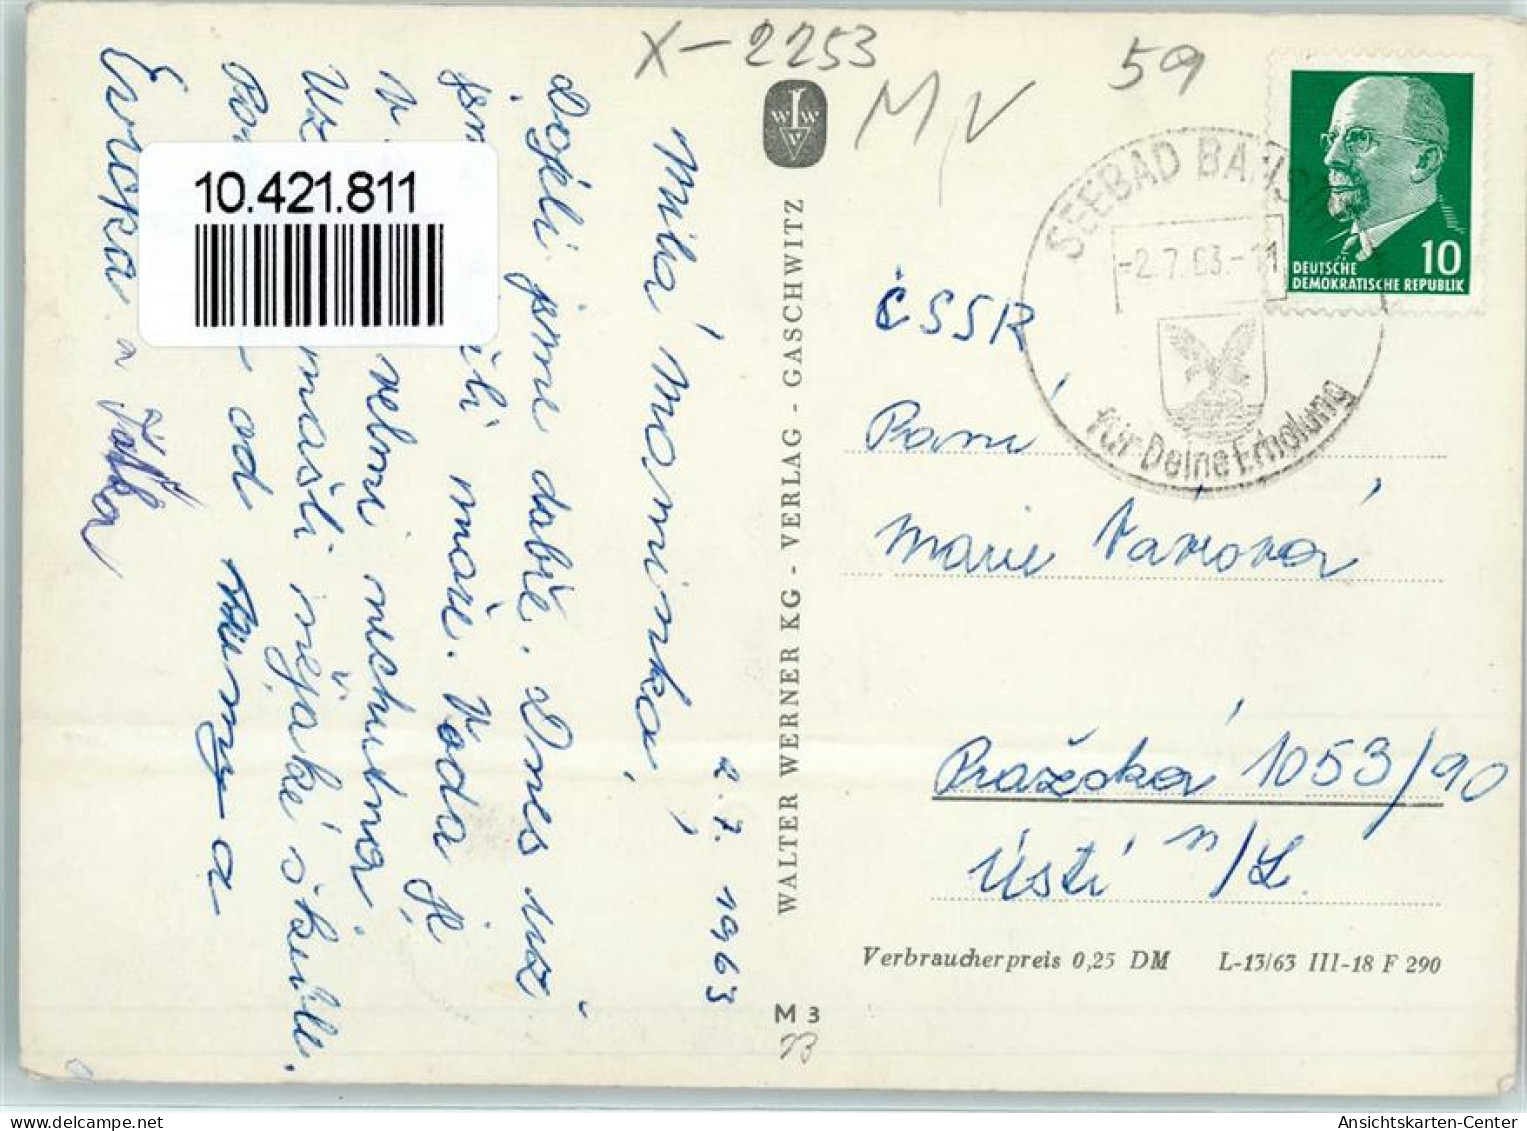 X-2253
59
M,V
DEUTSCHE
DEMOKRATISCHE REPUBLIK
10
SEEBAD BANS
-2.7.63.-11
für Deine Erholung
ČSSR
Paní
Marie Vávrová
Pražská 1053/90
Ústí n/L.
Verbraucherpreis 0,25 DM L-13/63 III-18 F 290
WALTER WERNER KG - VERLAG - GASCHWITZ
M 3
2.7.1963
Milá maminko,
Dojeli jsme dobře. Dnes už
moře. Voda je
velmi nechutná
Už našli nějaké škeble.
od
Evička a
10.421.811
www.delcampe.net
picoolia
Ansichtskarten-Center